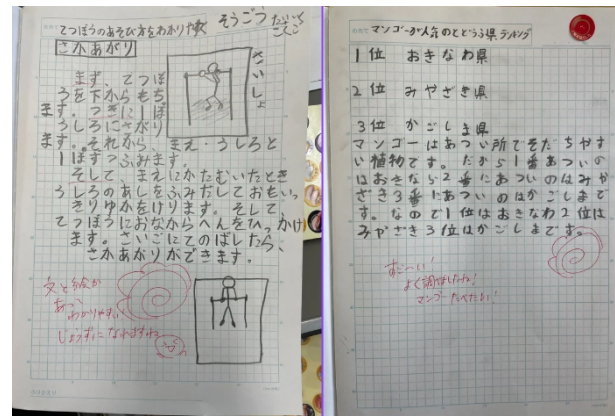 てつぼうのあそび方をわかりやすく
さかあがり
さいしょ
まず、てつぼ
うを下からもち
ます。つぎに1ぽ
うしろにさがり
ます。それから、まえ・うしろと
1ぽずつふみます。
そして、まえにかたむいたとき
うしろのあしをふみだしておもいっ
きりゆかをけります。そして、
てつぼうにおなからへんをひっかけ
ます。さいごにてのばしたら、
さかあがりができます。
文と絵が
あって
わかりやすい
じょうずになれますね
マンゴーが人気のとどうふ県ランキング
1位 おきなわ県
2位 みやざき県
3位 かごしま県
マンゴーはあつい所でそだちやす
い植物です。だから1番あついの
はおきなら2番にあついのはみや
ざき3番にあついのはかごしまで
す。なので1位はおきなわ2位は
みやざき3位はかごしまです。
すごーい!
よく調べましたね!
マンゴーたべたい!